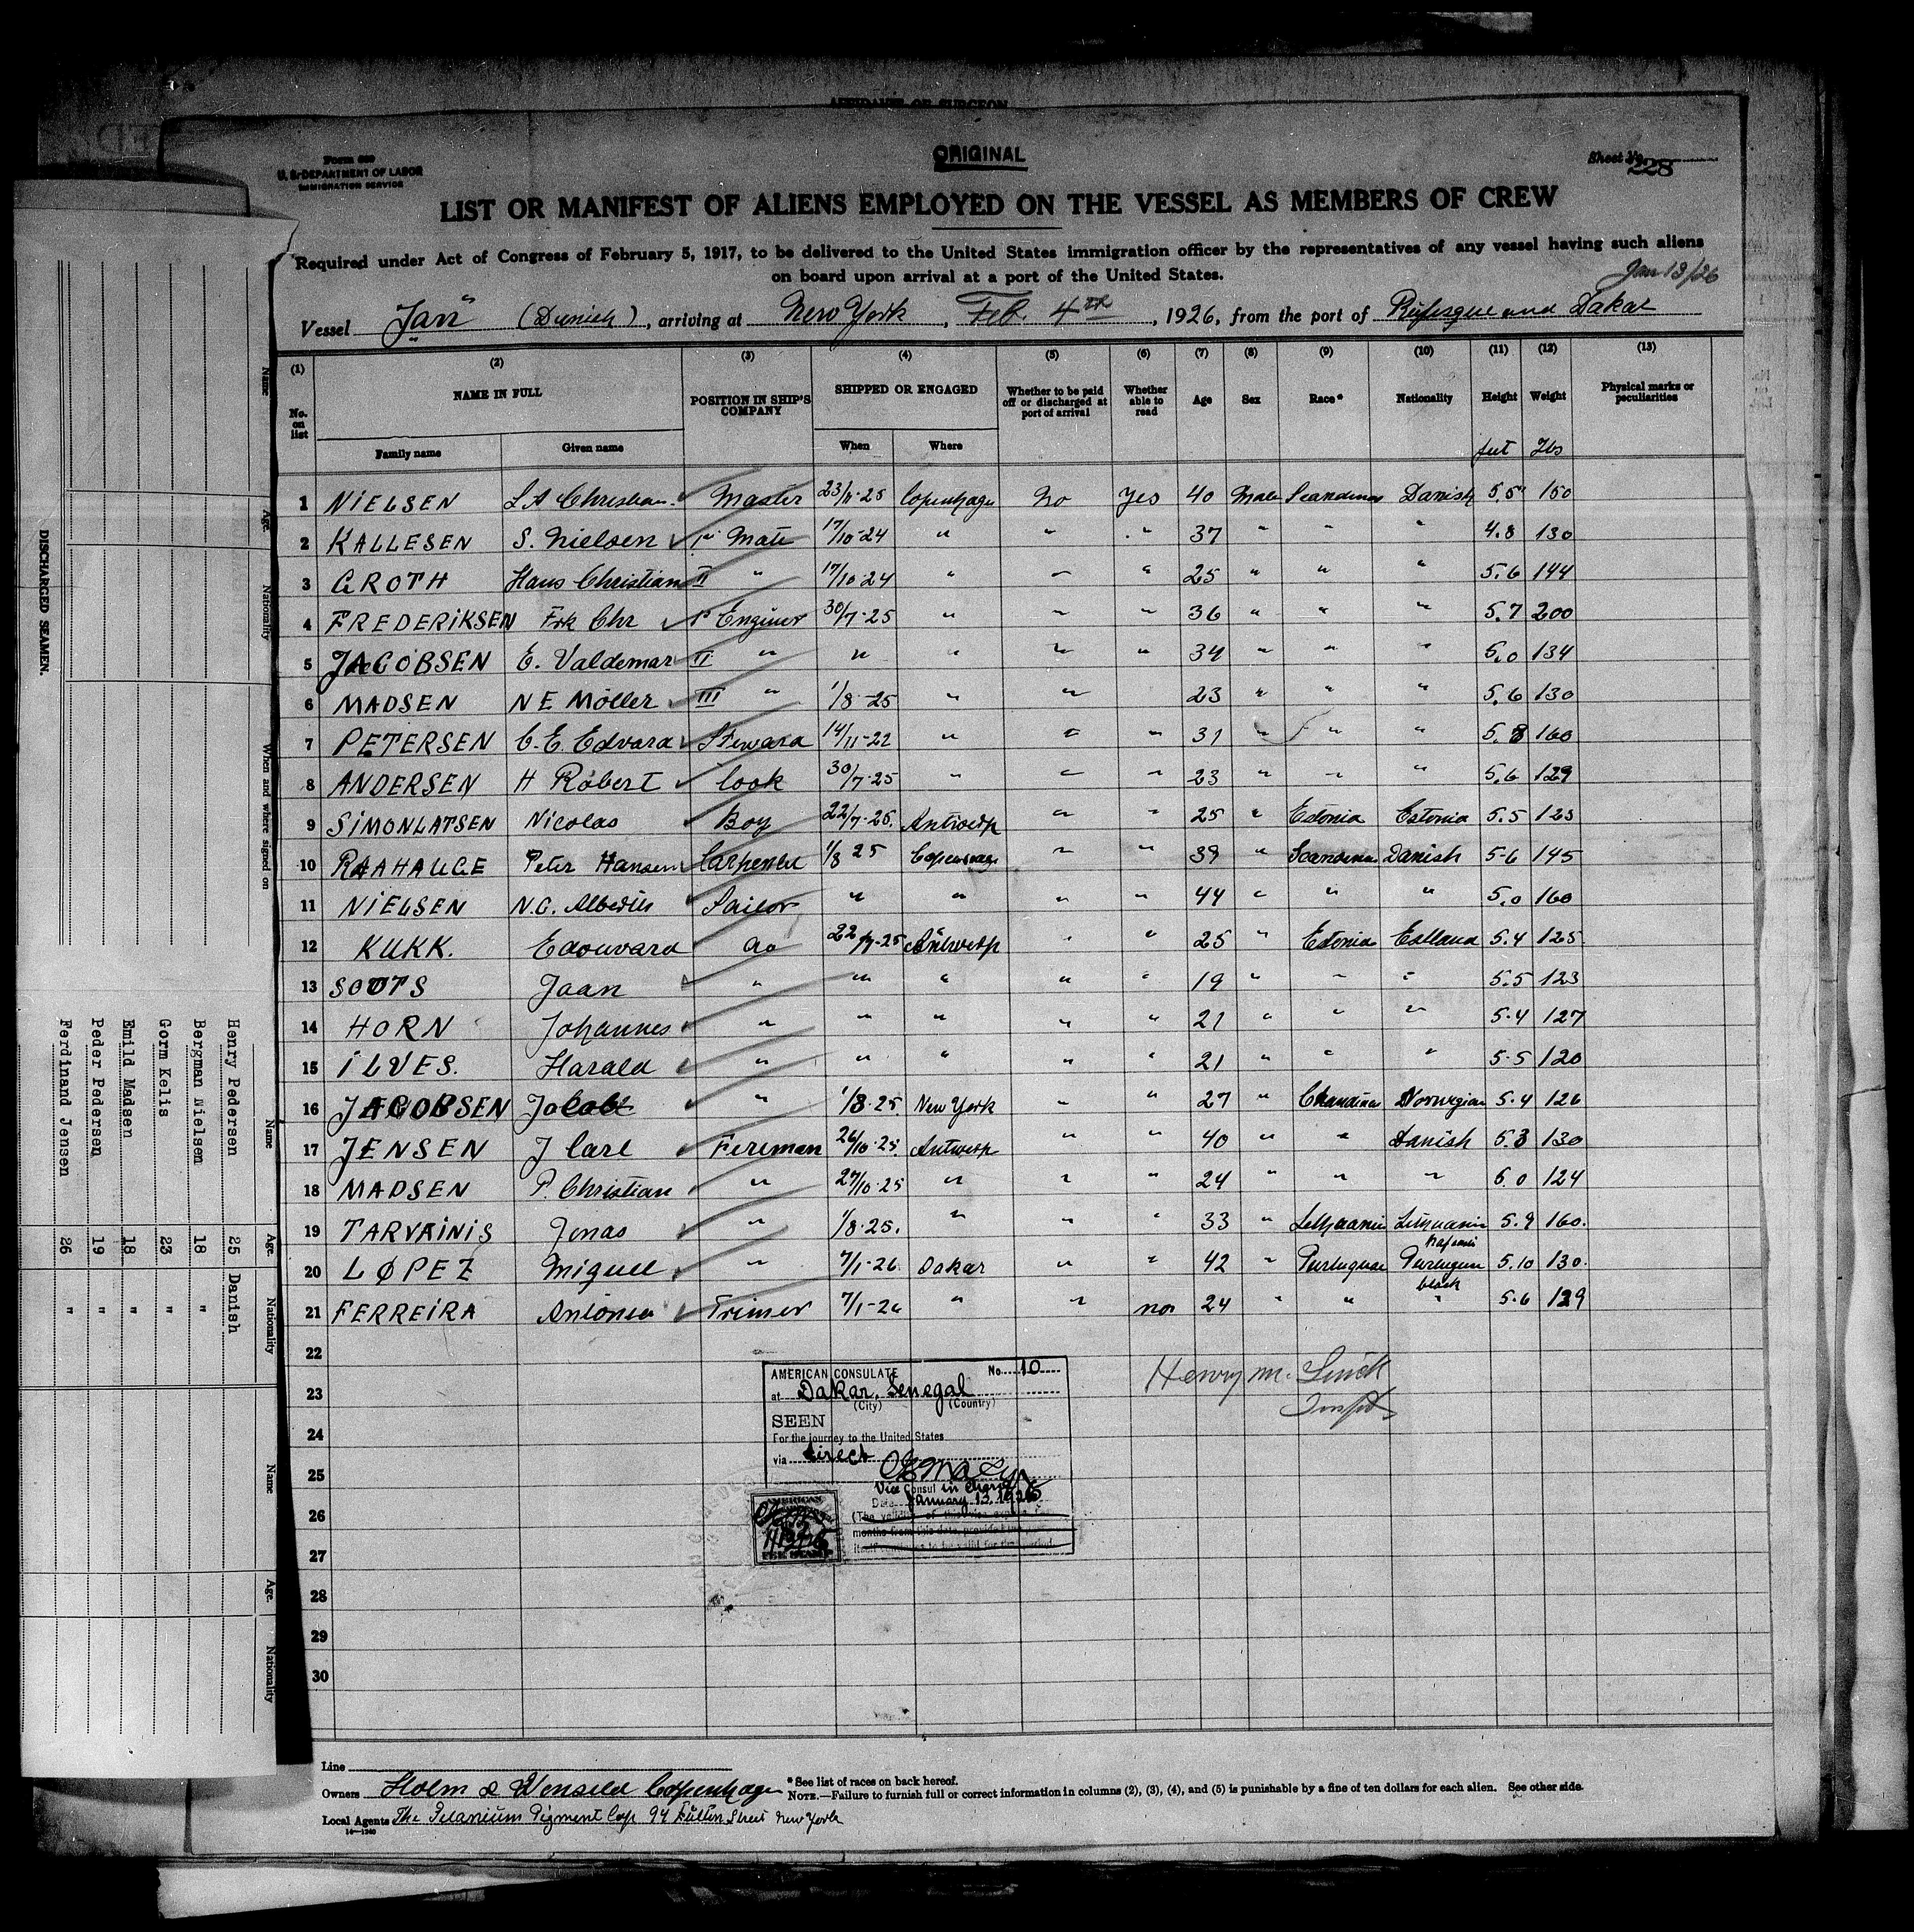 AFFIDAVIT OF SURGEON
Form 689
U. S. DEPARTMENT OF LABOR
IMMIGRATION SERVICE
ORIGINAL
Sheet No. 228
LIST OR MANIFEST OF ALIENS EMPLOYED ON THE VESSEL AS MEMBERS OF CREW
Required under Act of Congress of February 5, 1917, to be delivered to the United States immigration officer by the representatives of any vessel having such aliens
on board upon arrival at a port of the United States.
Jan 13/26
Vessel "Jan" (Danish), arriving at New York, Feb. 4th, 1926, from the port of Rufisque and Dakar
(1) (2) (3) (4) (5) (6) (7) (8) (9) (10) (11) (12) (13)
No. on list NAME IN FULL POSITION IN SHIP'S COMPANY SHIPPED OR ENGAGED Whether to be paid off or discharged at port of arrival Whether able to read Age Sex Race* Nationality Height Weight Physical marks or peculiarities
Family name Given name When Where feet Lbs
1 NIELSEN L A Christian Master 23/11-25 Copenhagen No Yes 40 Male Scandinav Danish 5.5" 150
2 KALLESEN S. Nielsen I Mate 17/10-24 " " " 37 " " " 4.8 130
3 GROTH Hans Christian II " 17/10-24 " " " 25 " " " 5.6 144
4 FREDERIKSEN Frk Chr I Enginer 30/7-25 " " " 36 " " " 5.7 200
5 JACOBSEN E. Valdemar II " " " " " 34 " " " 6.0 134
6 MADSEN N E Möller III " 1/8-25 " " 23 " " " 5.6 130
7 PETERSEN C. E. Edvard Steward 14/11-22 " " " 31 " " " 5.8 160
8 ANDERSEN H Robert Cook 30/7-25 " " " 23 " " " 5.6 129
9 SIMONLATSEN Nicolas Boy 22/7-25. Antwerp " " 25 " Estonia Estonia 5.5 123
10 RAAHAUGE Peter Hansen Carpenter 1/8 25 Copenhage " " 39 " Scandina Danish 5-6 145
11 NIELSEN N.C. Sailor " " " " 44 " " " 5.0 160
12 KUKK. Edouvard do 22/7-25 Antwerp " " 25 " Estonia Estland 5.4 125
13 SOOTS Jaan " " " " " 19 " " " 5.5 123
14 HORN Johannes " " " " " 21 " " " 5.4 127
15 ILVES. Harald " " " " " 21 " " " 5.5 120
16 JACOBSEN Jacob " 1/8-25. New York " " 27 " Norwegian 5.4 126
17 JENSEN J Carl Fireman 26/10-25. Antwerp " " 40 " " Danish 5.3 130
18 MADSEN P. Christian " 27/10-25 " " " 24 " " " 6.0 124
19 TARVAINIS Jonas " 1/8-25. " " " 33 " Lithuania 5.9 160.
20 LØPEZ Miguel " 7/1-26 Dakar " " 42 " Portuguese Portuguese 5.10 130.
black
21 FERREIRA Antonio Trimer 7/1-26 " " no 24 " " " 5.6 129
22
23
24
25
26
27
28
29
30
AMERICAN CONSULATE No. 10
at Dakar, Senegal
(City) (Country)
SEEN
For the journey to the United States
via direct
Vice Consul in charge
Date January 13, 1926
AMERICAN
FEE STAMP
Henry M.
Line
Owners Holm & Wonsild Copenhagen
*See list of races on back hereof.
NOTE.—Failure to furnish full or correct information in columns (2), (3), (4), and (5) is punishable by a fine of ten dollars for each alien. See other side.
Local Agents The Titanium Pigment Co. 94 Fulton Street New York
DISCHARGED SEAMEN.
Name Age. Nationality When and where signed on
Name Age. Nationality
Henry Pedersen 25 Danish
Bergman Nielsen 18 "
Gorm Kelis 23 "
Emild Madsen 18 "
Peder Pedersen 19 "
Ferdinand Jensen 26 "
Name Age. Nationality